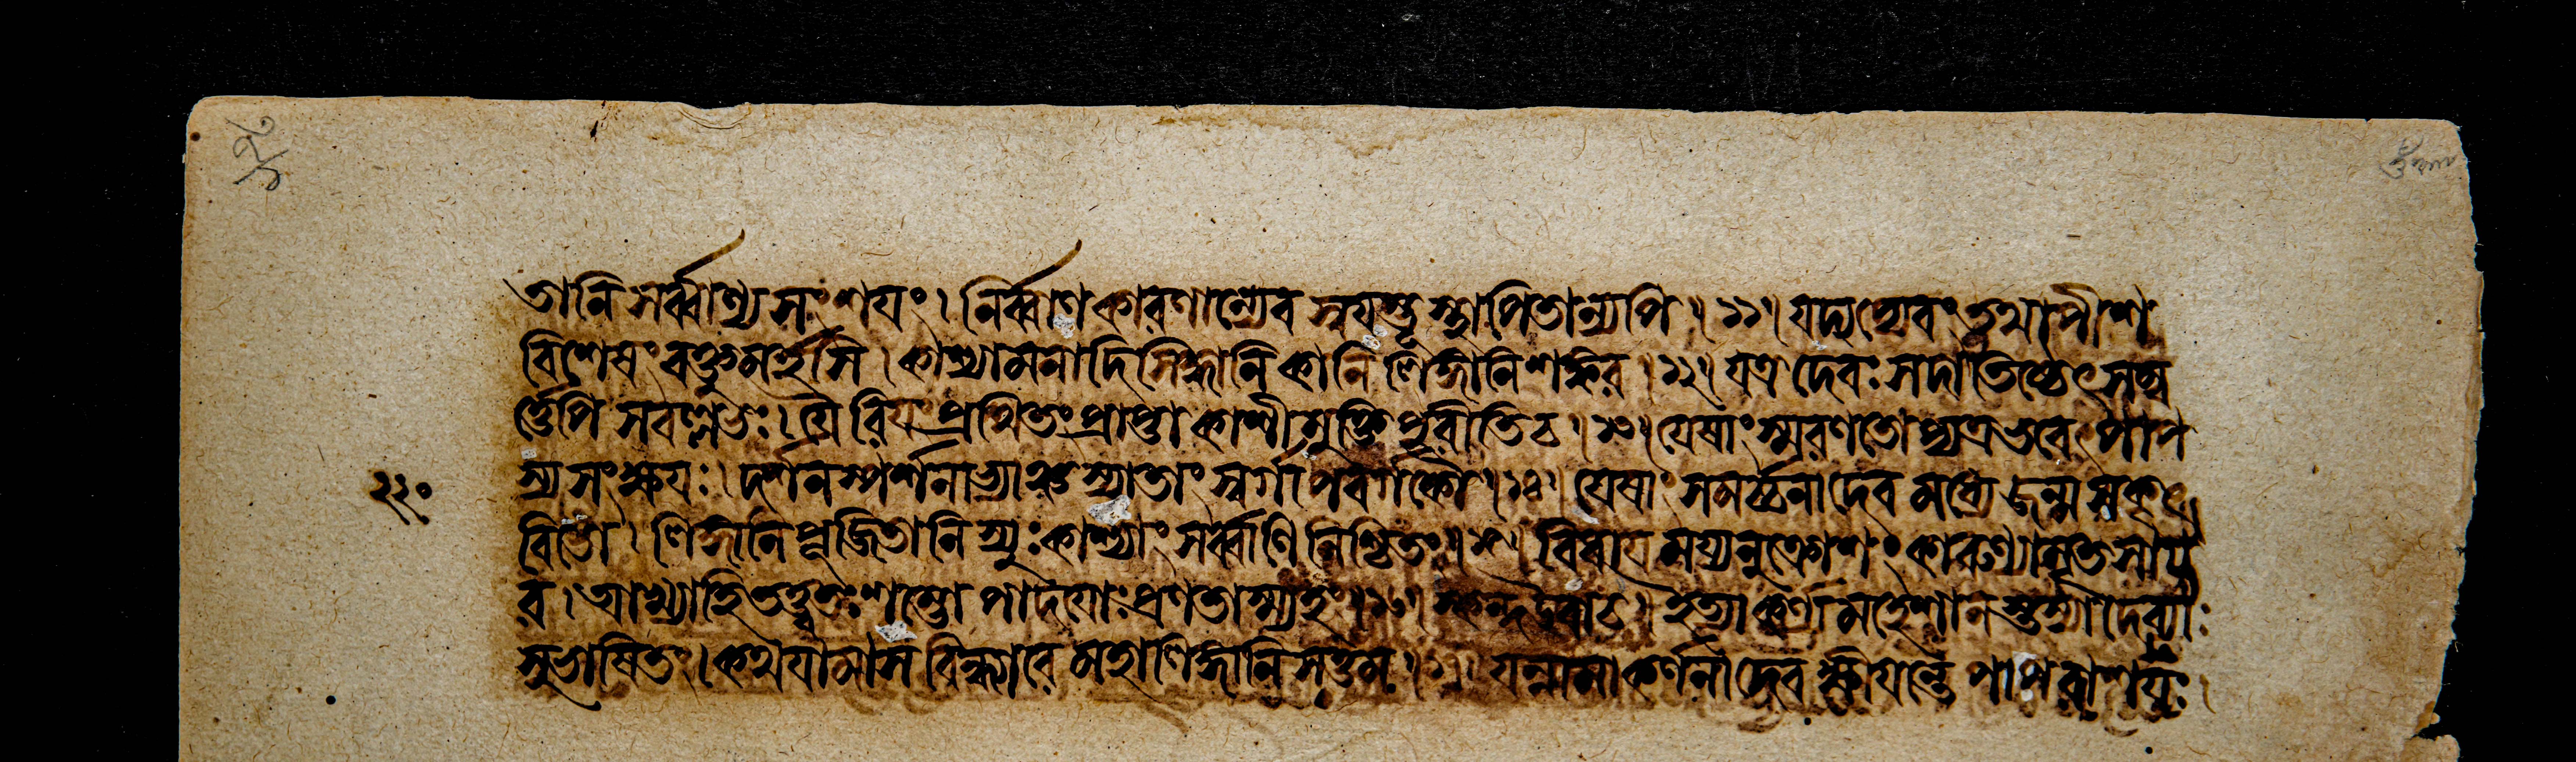 তানি সর্ব্বাণ্যসংশযং। নির্ব্বাণকারণান্যেব স্বযম্ভূস্থাপিতান্যপি।১১। যদ্যপ্যেবং তথাপীশ
বিশেষং বক্তুমর্হসি। কাশ্যামনাদিসিদ্ধানি কানি লিঙ্গানি শঙ্কর।১২। যত্র দেবঃ সদা তিষ্ঠেৎ সম্ব
র্ত্তেপি সবল্লভঃ। যৈরিযং প্রথিতিং প্রাপ্তা কাশী মুক্তিপুরীতি চ।১৩। যেষাং স্মরণতোপ্যত্র ভবেৎ পাপ
স্য সংক্ষযঃ। দর্শনস্পর্শনাভ্যাঞ্চ স্যাতাং স্বর্গাপবর্গকৌ।১৪। যেষাং সমর্চ্চনাদেব মধ্যে জন্ম সকৃৎ
বিভো। লিঙ্গানি পূজিতানি স্যুঃ কাশ্যাং সর্ব্বাণি নিশ্চিতং।১৫। বিধায ময্যনুক্রোশং কারুণ্যামৃতসাগ
র। আখ্যাহি তত্ত্বতঃ শম্ভো পাদযোঃ প্রণতাস্ম্যহং।১৬। স্কন্দ উবাচ। ইত্যাকর্ণ্য মহেশানস্তস্যা দেব্যাঃ
সুভাষিতং। কথযামাস বিন্ধ্যারে মহালিঙ্গানি সত্তম।১৭। যন্নামাকর্ণনাদেব ক্ষীযন্তে পাপরাশযঃ।
২২০